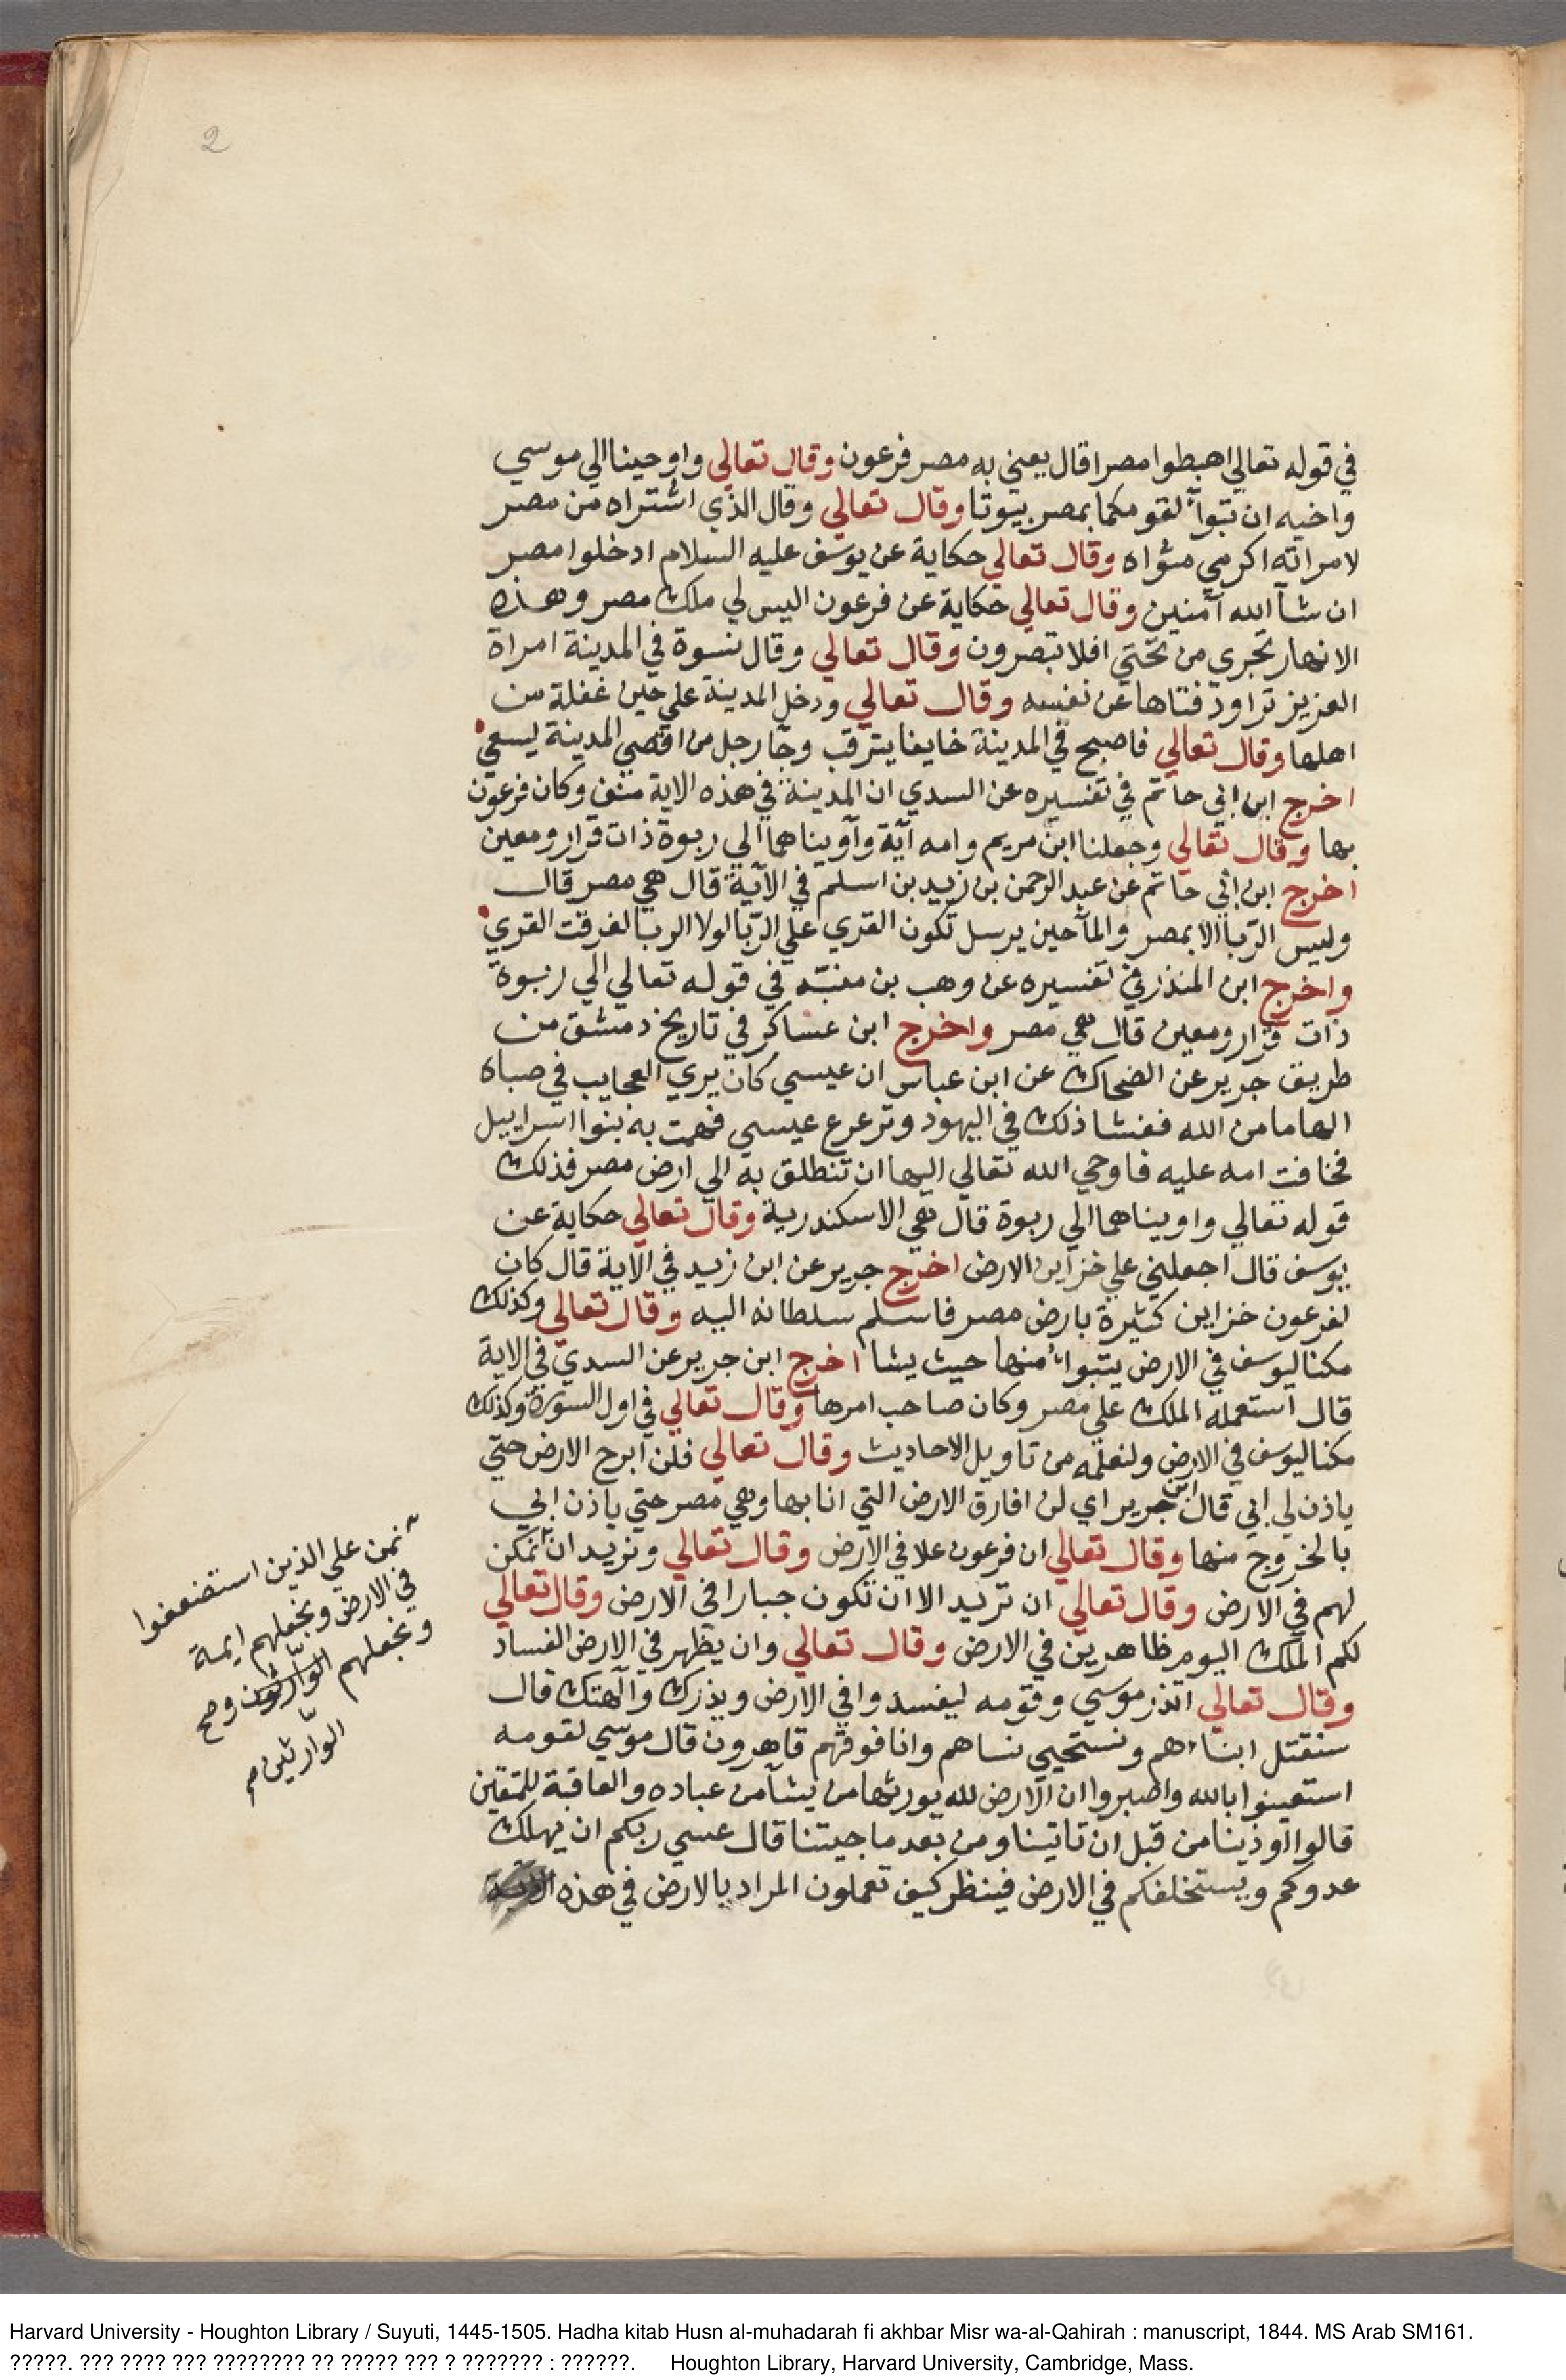 2
في قوله تعالي اهبطوا مصرا قال يعني به مصر فرعون وقال تعالي واوحينا الي موسي
واخيه ان تبوآ لقومكما بمصر بيوتا وقال تعالي وقال الذي اشتراه من مصر
لامراته اكرمي مثواه وقال تعالي حكاية عن يوسف عليه السلام ادخلوا مصر
ان شآ الله آمنين وقال تعالي حكاية عن فرعون اليس لي ملك مصر وهذه
الانهار تجري من تحتي افلا تبصرون وقال تعالي وقال نسوة في المدينة امراة
العزيز تراود فتاها عن نفسه وقال تعالي ودخل المدينة علي حين غفلة من
اهلها وقال تعالي فاصبح في المدينة خايفا يترقب وجآ رجل من اقصي المدينة يسعي
اخرج ابن ابي حاتم في تفسيره عن السدي ان المدينة في هذه الاية منف وكان فرعون
بها وقال تعالي وجعلنا ابن مريم وامه آية وآويناهما الي ربوة ذات قرار ومعين
اخرج ابن ابي حاتم عن عبد الرحمن بن زيد بن اسلم في الآية قال هي مصر قال
وليس الربا الا بمصر والمآ حين يرسل تكون القري علي الربا لولا الربا لغرقت القري
واخرج ابن المنذر في تفسيره عن وهب بن منبّه في قوله تعالي الي ربوة
ذات قرار ومعين قال هي مصر واخرج ابن عساكر في تاريخ دمشق من
طريق جرير عن الضحاك عن ابن عباس ان عيسي كان يري العجايب في صباه
الهاما من الله ففشا ذلك في اليهود وترعرع عيسي فهمت به بنوا اسراييل
فخافت امه عليه فاوحي الله تعالي اليها ان تنطلق به الي ارض مصر فذلك
قوله تعالي واويناهما الي ربوة قال هي الاسكندرية وقال تعالي حكاية عن
يوسف قال اجعلني علي خزآين الارض اخرج جرير عن ابن زيد في الآية قال كان
لفرعون خزاين كثيرة بارض مصر فاسلم سلطانه اليه وقال تعالي وكذلك
مكنا ليوسف في الارض يتبوا منها حيث يشا اخرج ابن جرير عن السدي في الاية
قال استعمله الملك علي مصر وكان صاحب امرها وقال تعالي في اول السورة وكذلك
مكنا ليوسف في الارض ولنعلمه من تاويل الاحاديث وقال تعالي فلن ابرح الارض حتي
ياذن لي ابي قال ابن جرير اي لن افارق الارض التي انا بها وهي مصر حتي ياذن ابي
بالخروج منها وقال تعالي ان فرعون علا في الارض وقال تعالي ونريد ان نمكن
لهم في الارض وقال تعالي ان تريد الا ان تكون جبارا في الارض وقال تعالي
لكم الملك اليوم ظاهرين في الارض وقال تعالي وان يظهر في الارض الفساد
وقال تعالي اتذر موسي وقومه ليفسدوا في الارض ويذرك وآلهتك قال
سنقتل ابناءهم ونستحيي نساهم وانا فوقهم قاهرون قال موسي لقومه
استعينوا بالله واصبروا ان الارض لله يورثها من يشآ من عباده والعاقبة للمتقين
قالوا اوذينا من قبل ان تاتينا ومن بعد ما جيتنا قال عسي ربكم ان يهلك
عدوكم ويستخلفكم في الارض فينظر كيف تعملون المراد بالارض في هذه
نمن علي الذين استضعفوا
في الارض ونجعلهم ايمة
ونجعلهم الوارثون وصح
الوارثين م
Harvard University - Houghton Library / Suyuti, 1445-1505. Hadha kitab Husn al-muhadarah fi akhbar Misr wa-al-Qahirah : manuscript, 1844. MS Arab SM161.
?????. ??? ???? ??? ???????? ?? ????? ??? ? ??????? : ??????. Houghton Library, Harvard University, Cambridge, Mass.